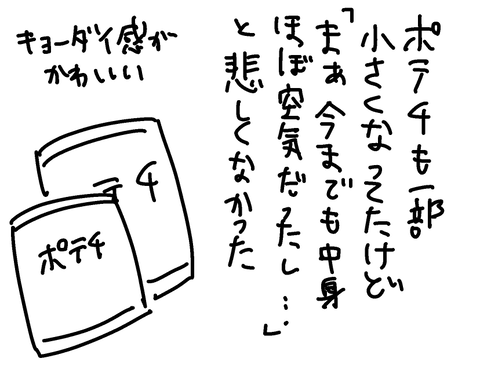 ポテチも一部
小さくなってたけど
「まぁ今までも中身
ほぼ空気だったし…」
と悲しくなかった
キョーダイ感が
かわいい
テチ
ポテチ